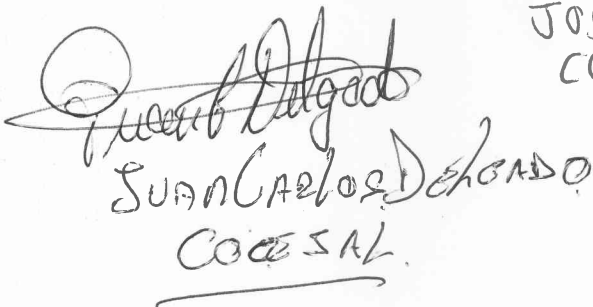 JOS
CO
Delgado
JUAN CARLOS DELGADO
COCESAL